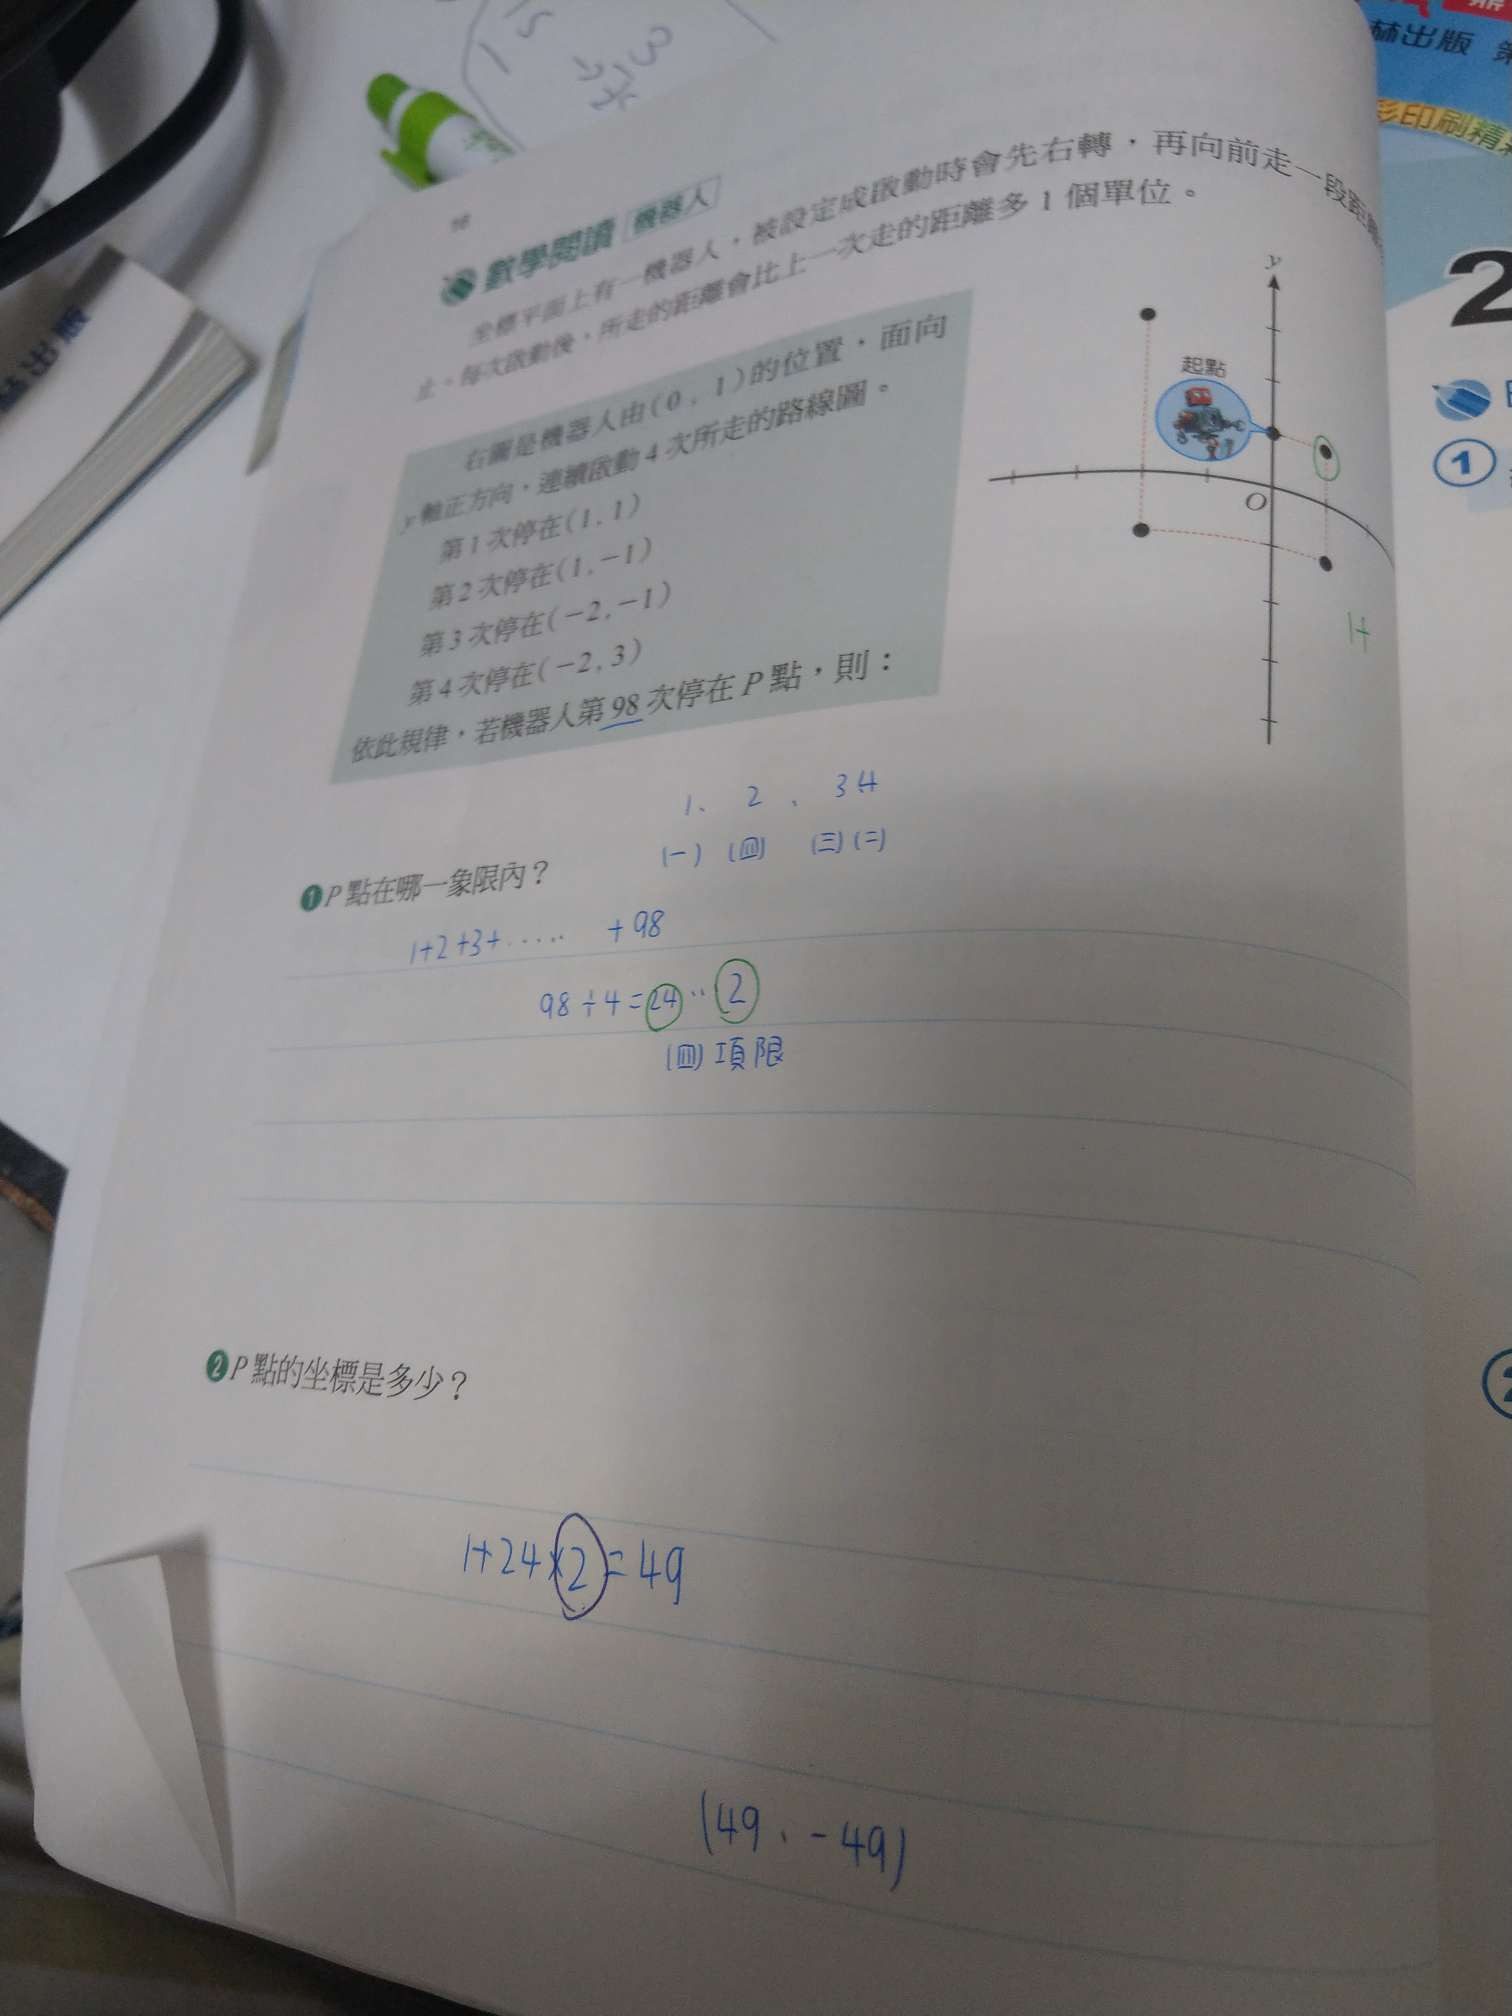 15
3
1
林出版 第
彩印刷精
出版
數學閱讀 機器人
坐標平面上有一機器人，被設定成啟動時會先右轉，再向前走一段距離
止。每次啟動後，所走的距離會比上一次走的距離多1個單位。
右圖是機器人由(0，1)的位置，面向
y軸正方向，連續啟動4次所走的路線圖。
第1次停在(1,1)
第2次停在(1,-1)
第3次停在(-2,-1)
第4次停在(-2,3)
依此規律，若機器人第98次停在P點，則：
y
起點
O
1+
2
1
1、 2 、 3 4
(一) (四) (三) (二)
❶P點在哪一象限內？
1+2+3+..... +98
98÷4=24‥2
(四)項限
❷P點的坐標是多少？
1+24×2=49
(49、-49)
2